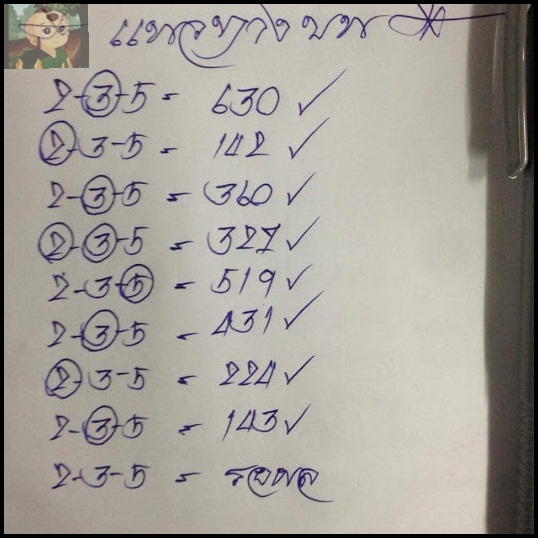 2-3-5 = 630 ✓
2-3-5 = 142 ✓
2-3-5 = 360 ✓
2-3-5 = 327 ✓
2-3-5 = 519 ✓
2-3-5 = 431 ✓
2-3-5 = 224 ✓
2-3-5 = 143 ✓
2-3-5 = รอผล